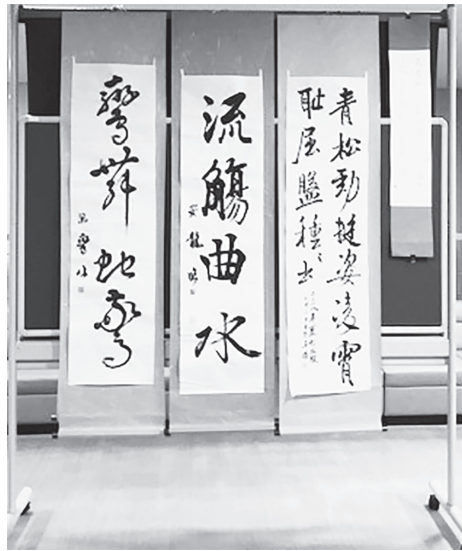 青松勁挺姿凌霄
耻屈盤種〻出
流觴曲水
鸞舞蛇驚